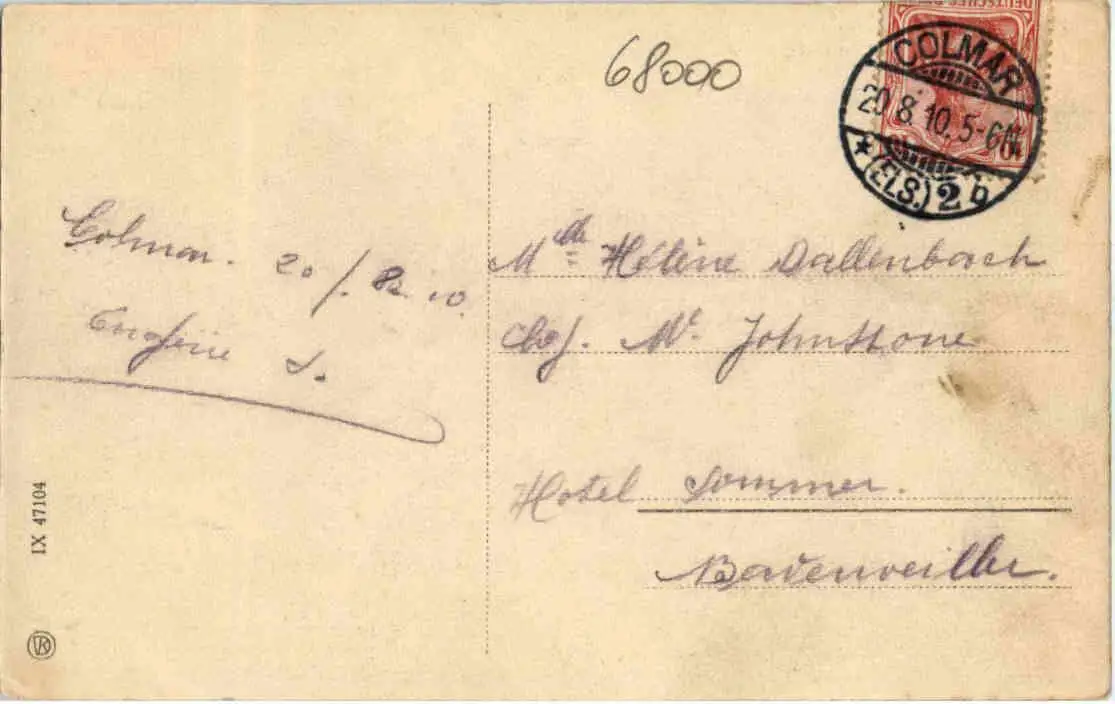 68000
DEUTSCHES
COLMAR
20.8.10.5-6N.
* (ELS.) 2 b
10
Colmar. 20/.8. 10.
Eugénie S.
Mlle Hélène Dallenbach
chez. Mr. Johnstone
Hotel Sommer.
Badenweiller.
IX 47104